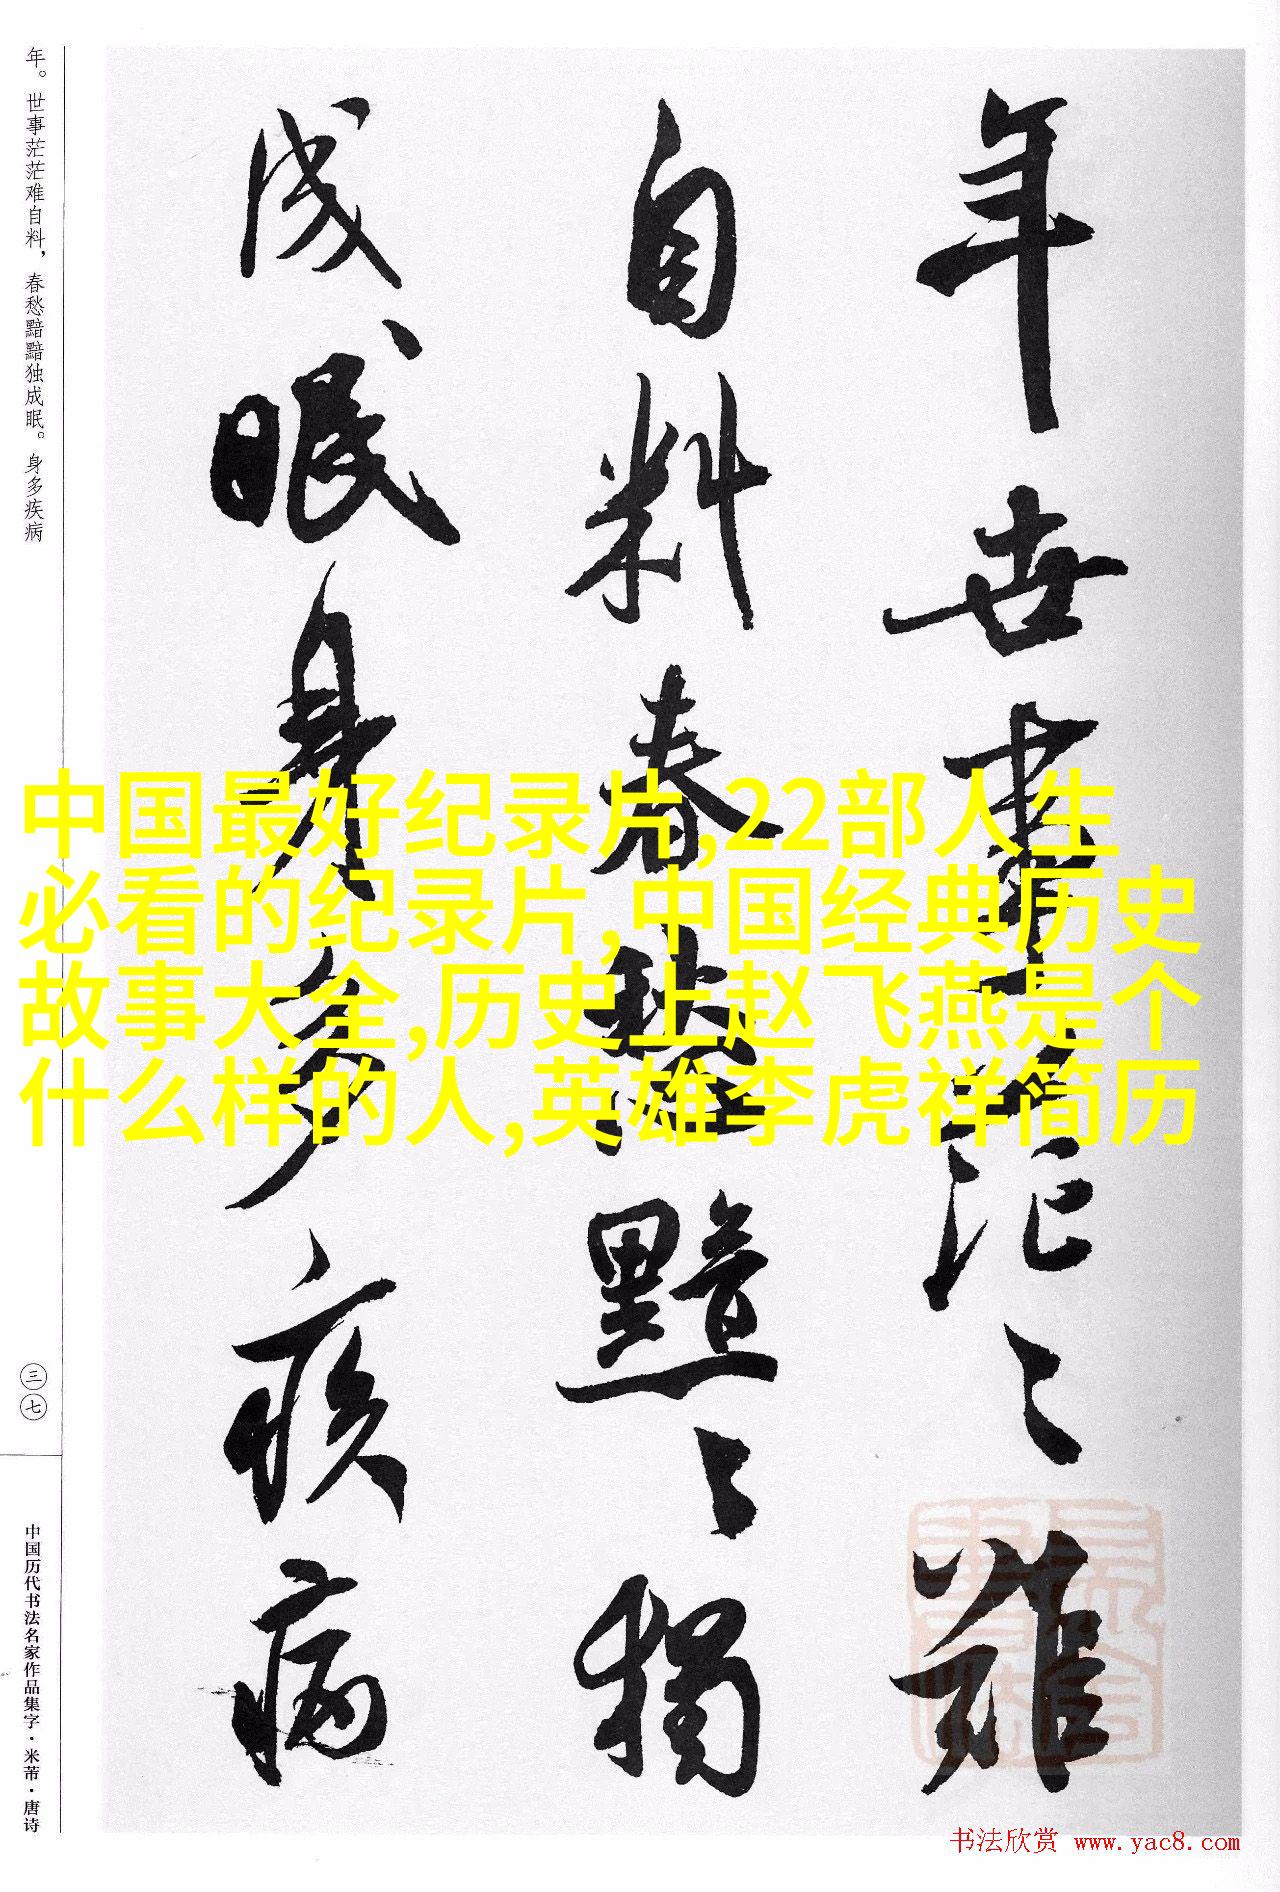 年世事茫〻難
自料春愁黯〻獨
成眠身多疾病
年。世事茫茫难自料，春愁黯黯独成眠。身多疾病
三七
中国历代书法名家作品集字·米芾·唐诗
中国最好纪录片,22部人生
必看的纪录片,中国经典历史
故事大全,历史上赵飞燕是个
什么样的人,英雄李虎祥简历
书法欣赏 www.yac8.com